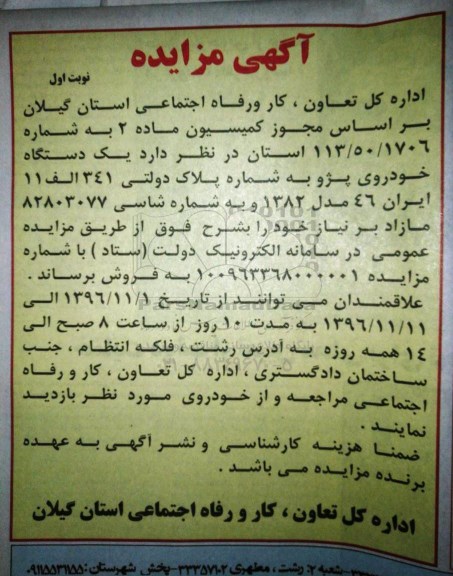 آگهی مزایده
نوبت اول
اداره کل تعاون ، کار ورفاه اجتماعی استان گیلان
بر اساس مجوز کمیسیون ماده ۲ به شماره
۱۱۳/۵۰/۱۷۰۶ استان در نظر دارد یک دستگاه
خودروی پژو به شماره پلاک دولتی ۳۴۱ الف ۱۱
ایران ۴۶ مدل ۱۳۸۲ و به شماره شاسی ۸۲۸۰۳۰۷۷
مازاد بر نیاز خود را بشرح فوق از طریق مزایده
عمومی در سامانه الکترونیک دولت (ستاد ) با شماره
مزایده ۱۰۰۹۶۳۳۶۸۰۰۰۰۰۱ به فروش برساند .
علاقمندان می توانند از تاریخ ۱۳۹۶/۱۱/۱ الی
۱۳۹۶/۱۱/۱۱ به مدت ۱۰ روز از ساعت ۸ صبح الی
۱۴ همه روزه به آدرس رشت ، فلکه انتظام ، جنب
ساختمان دادگستری ، اداره کل تعاون ، کار و رفاه
اجتماعی مراجعه و از خودروی مورد نظر بازدید
نمایند .
ضمنا هزینه کارشناسی و نشر آگهی به عهده
برنده مزایده می باشد .
اداره کل تعاون ، کار و رفاه اجتماعی استان گیلان
شعبه ۲: رشت ، مطهری ۳۳۳۵۷۱۰۲-پخش شهرستان : ۰۹۱۱۵۵۳۱۱۵۵